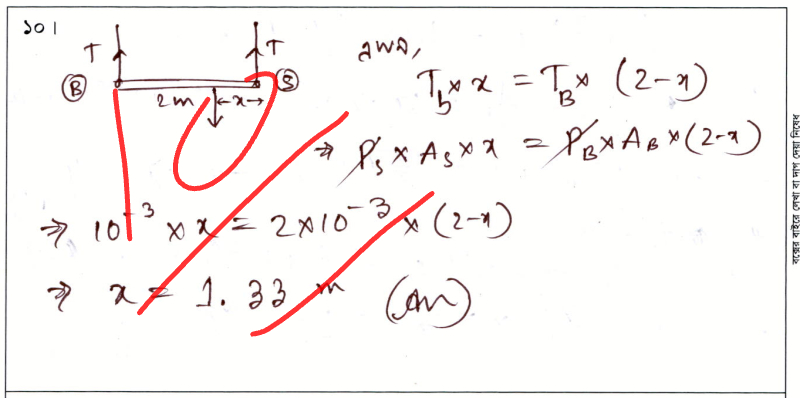 ১০।
T T
B S
2m x
এখন,
T_b × x = T_B × (2-x)
⇒ P_s × A_s × x = P_B × A_B × (2-x)
⇒ 10^-3 × x = 2×10^-3 × (2-x)
⇒ x = 1.33 m (Am)
বক্সের বাইরে লেখা বা দাগ দেয়া নিষেধ